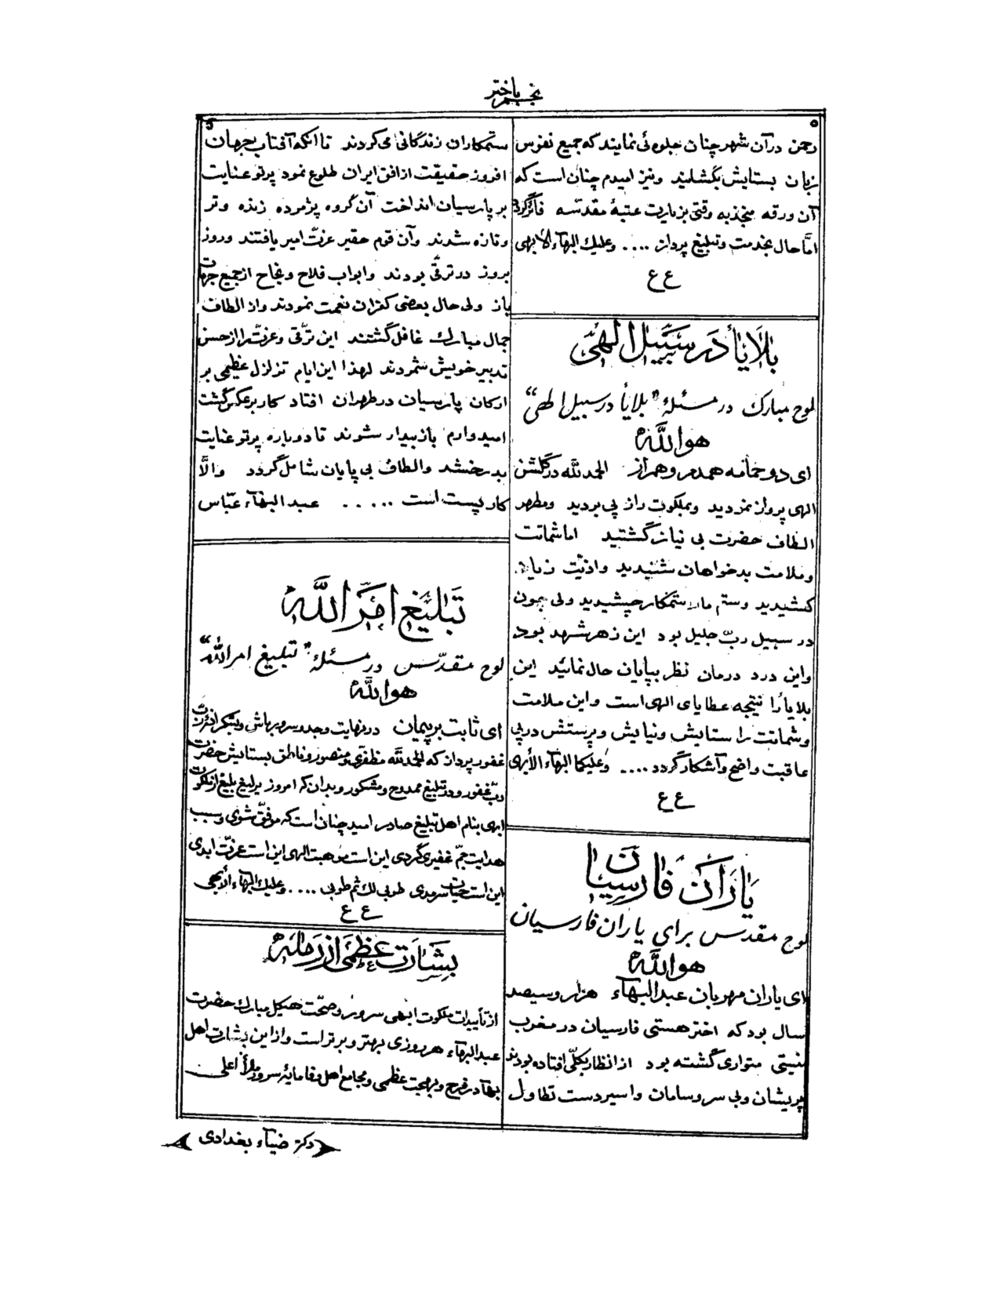 نجم باختر
۵
رحمن در آن شهر چنان جلوه ئی نمایند که جمیع نفوس
زبان بستایش بگشایند و نیز امیدم چنان است که
آن ورقه منجذبه وقتی بزیارت عتبهٔ مقدّسه فائز گردد
امّا حال بخدمت و تبلیغ پرداز .... و علیک البهآء الابهی
ع ع
بلایا در سبیل الهی
لوح مبارک در مسئلهٔ "بلایا در سبیل الهی"
هوالله
ای دو حمامه همدم و همراز الحمد لله در گلشن
الهی پرواز نمودید و بملکوت راز پی بردید و مظهر
الطاف حضرت بی نیاز گشتید اما شماتت
و ملامت بدخواهان شنیدید و اذیّت زیاد
کشیدید و ستم ستمکار چشیدید ولی چون
در سبیل ربّ جلیل بود این زهر شهد بود
و این درد درمان نظر بپایان حال نمائید این
بلایا را نتیجه عطایای الهی است و این ملامت
و شماتت را ستایش و نیایش و پرستش در پی
عاقبت واضح و آشکار گردد .... و علیکما البهآء الأبهی
ع ع
یاران فارسیان
لوح مقدس برای یاران فارسیان
هوالله
ای یاران مهربان عبدالبهآء هزار و سیصد
سال بود که اختر هستی فارسیان در مغرب
نیستی متواری گشته بود از انظار بکلّی افتاده بودند
پریشان و بی سر و سامان و اسیر دست تطاول
ستمکاران زندگانی می کردند تا آنکه آفتاب جهان
افروز حقیقت از افق ایران طلوع نمود پرتو عنایت
بر پارسیان انداخت آن گروه پژمرده زنده و تر
و تازه شدند و آن قوم حقیر عزّت امیر یافتند و روز
بروز در ترقّی بودند و ابواب فلاح و نجاح از جمیع جهات
باز ولی حال بعضی کفران نعمت نمودند و از الطاف
جمال مبارک غافل گشتند این ترقّی و عزّت را از حسن
تدبیر خویش شمردند لهذا این ایام تزلزل عظیمی بر
ارکان پارسیان در طهران افتاد کار بر عکس گشت
امیدوارم باز بیدار شوند تا دوباره پرتو عنایت
بدرخشد و الطاف بی پایان شامل گردد والّا
کار پست است ..... عبد البهآء عبّاس
تبلیغ امر الله
لوح مقدّس در مسئلهٔ "تبلیغ امر الله"
هوالله
ای ثابت بر پیمان در نهایت وجد و سرور باش و بشکرانهٔ ربّ
غفور پرداز که الحمد لله مظفّری و منصور و ناطق بستایش حضرت
ربّ غفور و بعد تبلیغ ممدوح و مشکور و بدان که امروز یرلیغ بلیغ از ملکوت
ابهی بنام اهل تبلیغ صادر امید چنان است که موفّق شوی و سبب
هدایت جمّ غفیری گردی این است موهبت الهی این است عزّت ابدی
این است حیات سرمدی طوبی لک ثم طوبی .... و علیک البهاء الأبهی
ع ع
بشارت عظمی از رمله
از تأییدات ملکوت ابهی سرور و صحّت هیکل مبارک حضرت
عبدالبهآء هر روزی بهتر و برتر است و از این بشارت اهل
بهآء در فرح و بهجت عظمی و مجامع اهل وفا مایهٔ سرور ملأ اعلی
دکتر ضیاء بغدادی